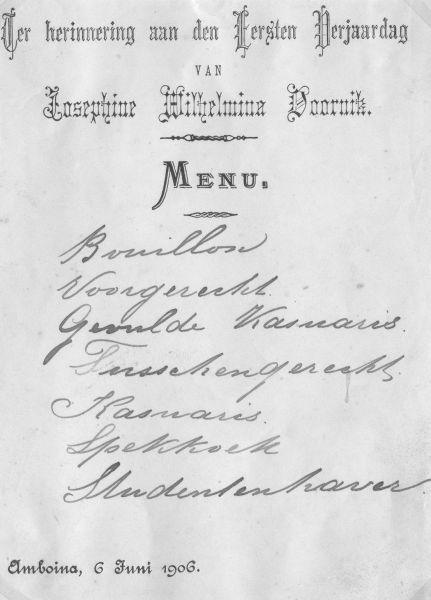 Ter herinnering aan den Eersten Verjaardag
VAN
Josephine Wilhelmina Doornik.
MENU.
Bouillon
Voorgerecht.
Gevulde Kasuaris.
Tusschengerecht.
Kasuaris.
Spekkoek
Studentenhaver.
Amboina, 6 Juni 1906.